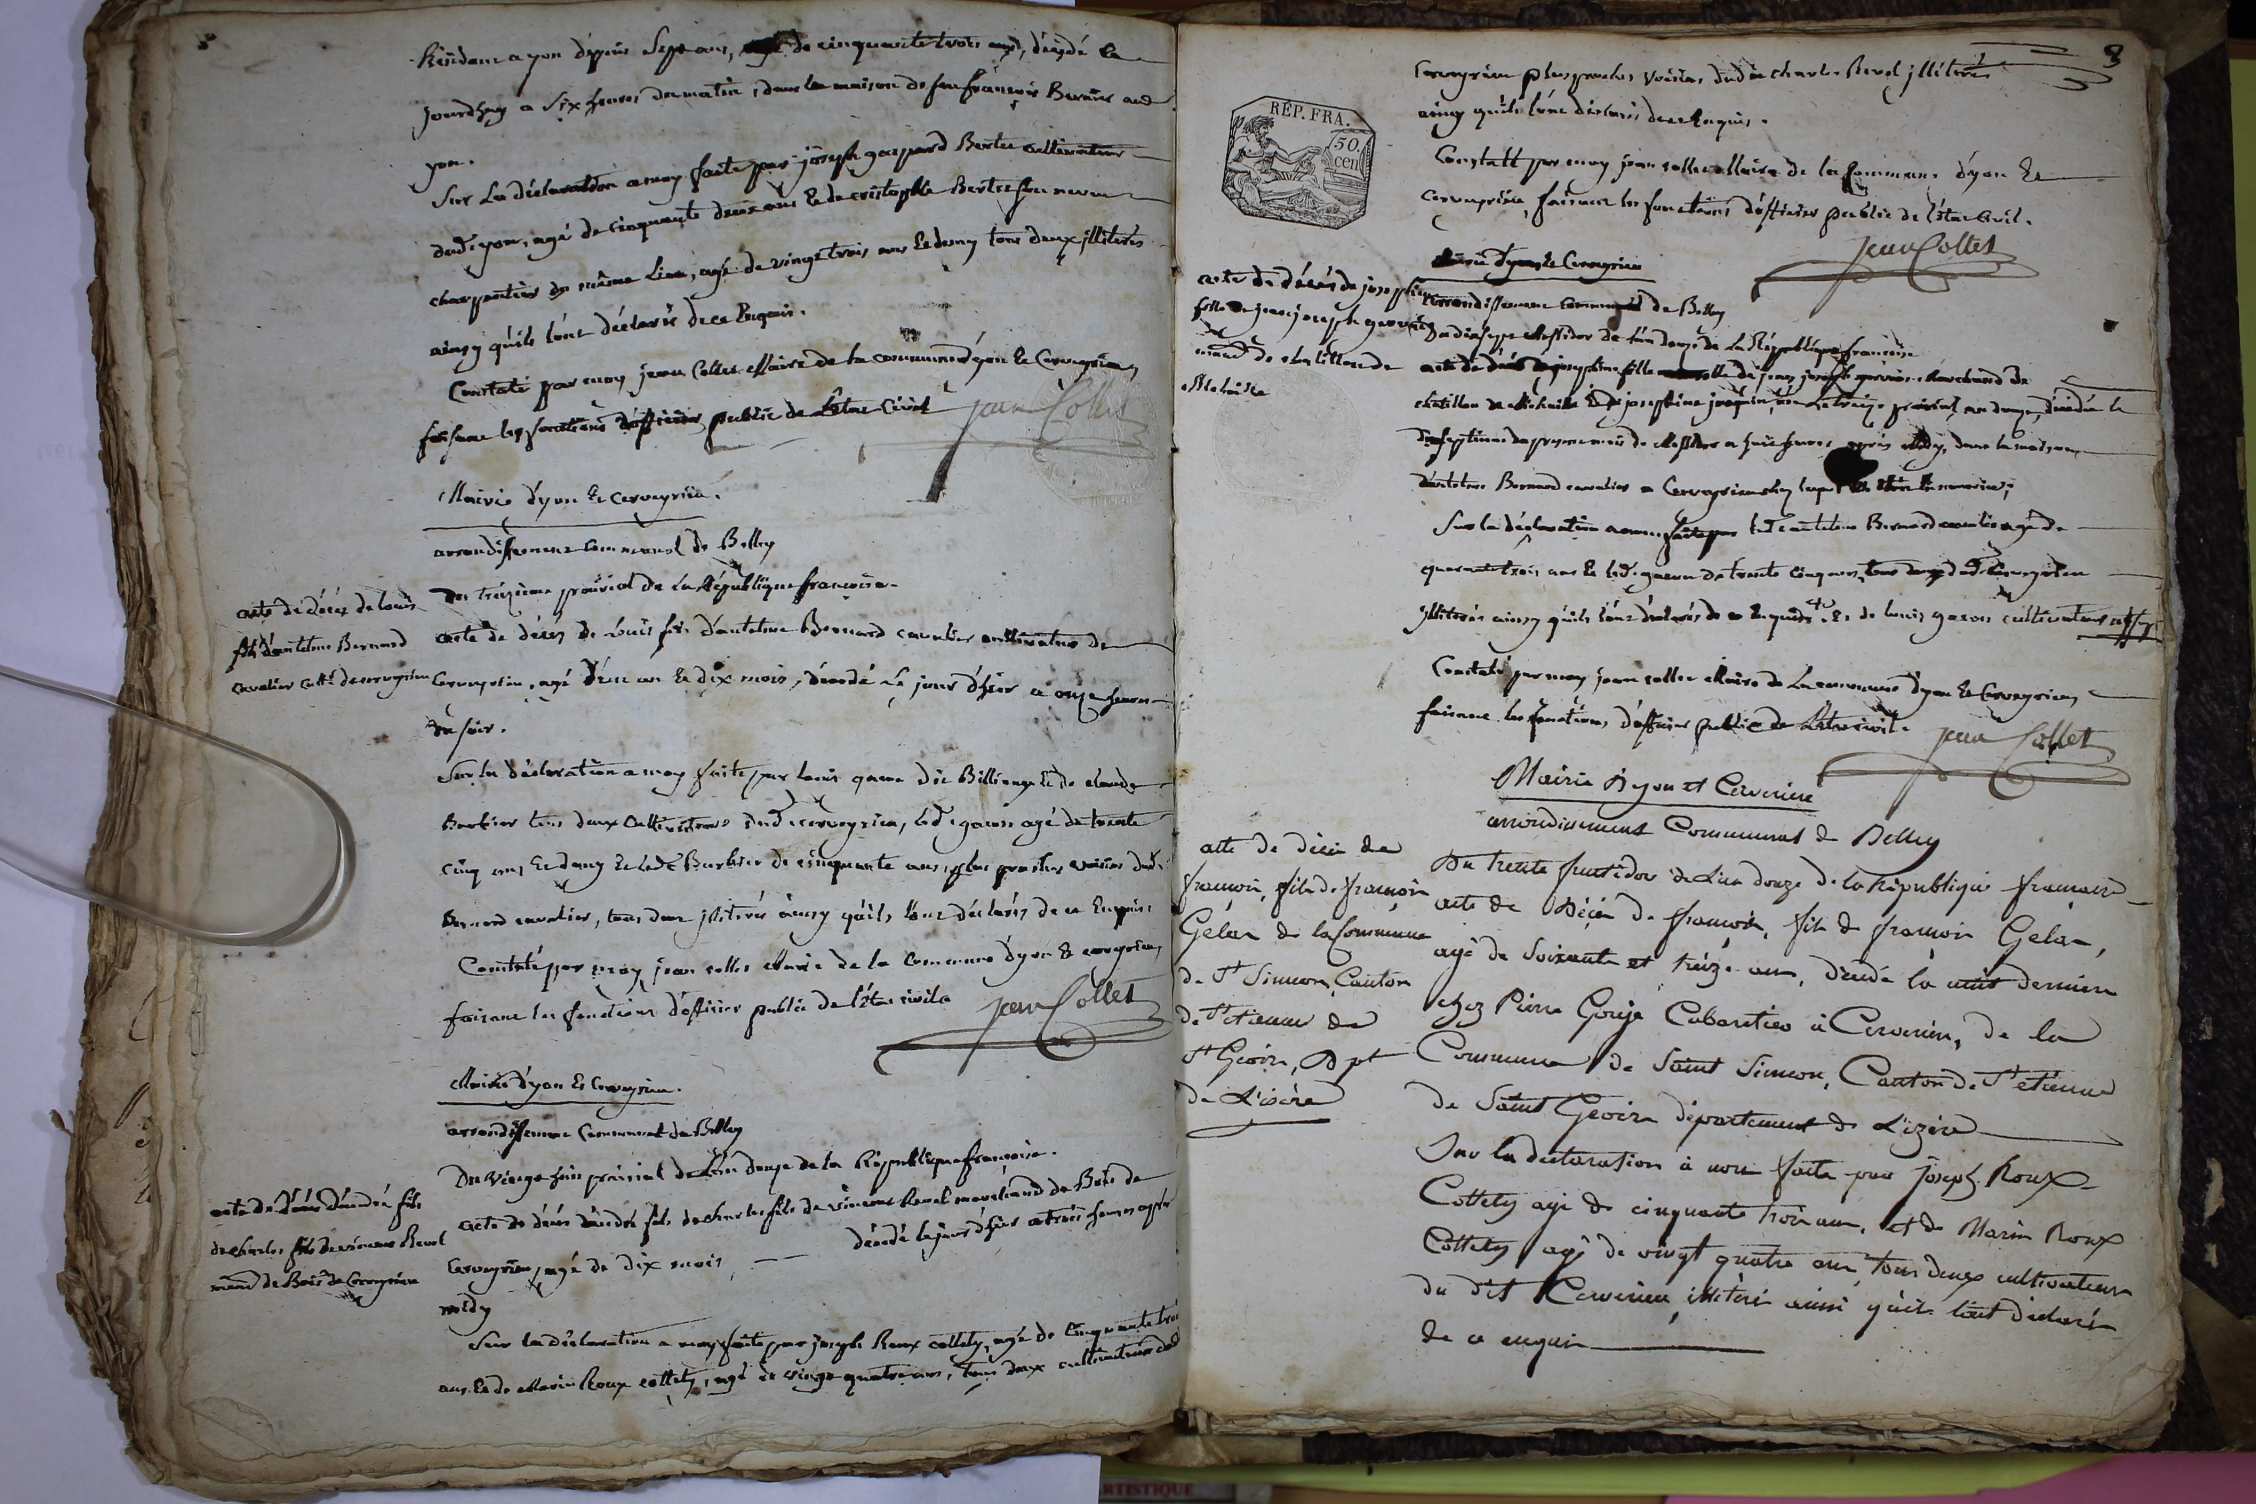 Résidant a yon dépuis Sept ans, agé de cinquante trois ans, décédé ce
jourdhuy a Six heures du matin, dans la maison de feu françois Bernier aud
yon.
Sur La déclaration a moy faite par joseph gaspard Bertet cultivateur
dud. yon, agé de cinquante deux ans et de cristophle Bertet son neveu
charpentier du même Lieu, agé de vingt trois ans et demy tous deux jllitérés
ainsy qu'ils l'ont déclarés de ce Enquis.
Constaté par moy jean Collet Maire de la commune d'yon et Cerveyrieu
faisant les fonctions d'officier public de L'etat Civil
jean Collet
Mairie d'yon et Cerveyrieu.
arrondissement Communal de Belley
Du treizieme prairial de La République françoise
acte de décès de Louis
fils d'antelme Bernard
Cavalier cult. de cerveyrieu
acte de décès de Louis fils d'antelme Bernard cavalier cultivateur de
Cerveyrieu, agé d'un an et dix mois, décédé Le jour d'hier a onze heures
du soir.
Sur la déclaration a moy faite par Louis garon dit Billion et de claude
Barbier tous deux cultivateurs dud. cerveyrieu, led. garon agé de trente
cinq ans et demy et led. Barbier de cinquante ans, plus proches voisins dud.
Bernard cavalier, tous deux jllitérés ainsy qu'ils l'ont déclarés de ce Enquis
Constaté par moy jean collet Maire de la Commune d'yon et cerveyrieu
faisant les fonctions d'officier public de l'état civil
jean Collet
Mairie d'yon et Cerveyrieu.
arrondissement Communal de Belley
Du vingt huit prairial de L'an douze de la République françoise.
acte de décès d'andré fils
de charles fils de vincent Revol
mard. de Bois de Cerveyrieu
acte de décès d'andré fils de charles fils de vincent Revol marchand de Bois de
Cerveyrieu, agé de dix mois, décédé le jour d'hier a trois heures après
midy
Sur la déclaration a moy faite par joseph Roux collety, agé de Cinquante trois
ans et de Marin Roux collety, agé de vingt quatre ans, tous deux cultivateurs dud.
8
Cerveyrieu plus proches voisins dudit charles Revol jllitérés
ainsy qu'ils l'ont déclarés de ce Enquis.
RÉP. FRA.
50
cen
Constaté par moy jean collet Maire de la Commune d'yon et
cerveyrieu, faisant les fonctions d'officier public de l'état Civil.
jean Collet
Mairie d'yon et Cerveyrieu
arrondissement Communal de Belley
acte de décès de josephine
fille de jean joseph
march. de chatillon de
Michaille
Du dixsept Messidor de l'an douze de La République françoise
acte de décès de josephine fille de jean joseph marchand de
chatillon de Michaille et de josephine née Le treize prairial an douze, décédée le
dixseptieme du present mois de Messidor a huit heures après Midy, dans la maison
d'antelme Bernard cavalier a Cerveyrieu
Sur la déclaration a moy faite par led. antelme Bernard cavalier agé de
quarante trois ans et led. garon de trente cinq ans, tous deux dud. Cerveyrieu
jllitérés ainsy qu'ils l'ont déclarés de ce Enquis et de louis garon cultivateur
Constaté par moy jean collet Maire de La commune d'yon et Cerveyrieu
faisant les fonctions d'officier public de L'etat civil.
jean Collet
Mairie D'yon et Cervérieu
arrondissement Communal de Belley
Du trente fructidor de L'an douze de la République française
acte de décès de
françois, fils de françois
Gélas de la Commune
de St Simeon, Canton
de St etienne de
St Geoirs, Dpt
de L'isère
acte de Décès de françois, fils de françois Gélas,
agé de Soixante et treize ans, décédé la nuit dernière
chez Pierre Gouje Cabaretier à Cervérieu, de la
Commune de Saint Simeon, Canton de St etienne
de Saint Geoirs département de L'izère
Sur la déclaration à nous faite par joseph Roux
Collety agé de cinquante trois ans, et de Marin Roux
Collety agé de vingt quatre ans, tous deux cultivateurs
du dit Cervérieu, illitérés ainsi qu'ils l'ont déclarés
de ce enquis